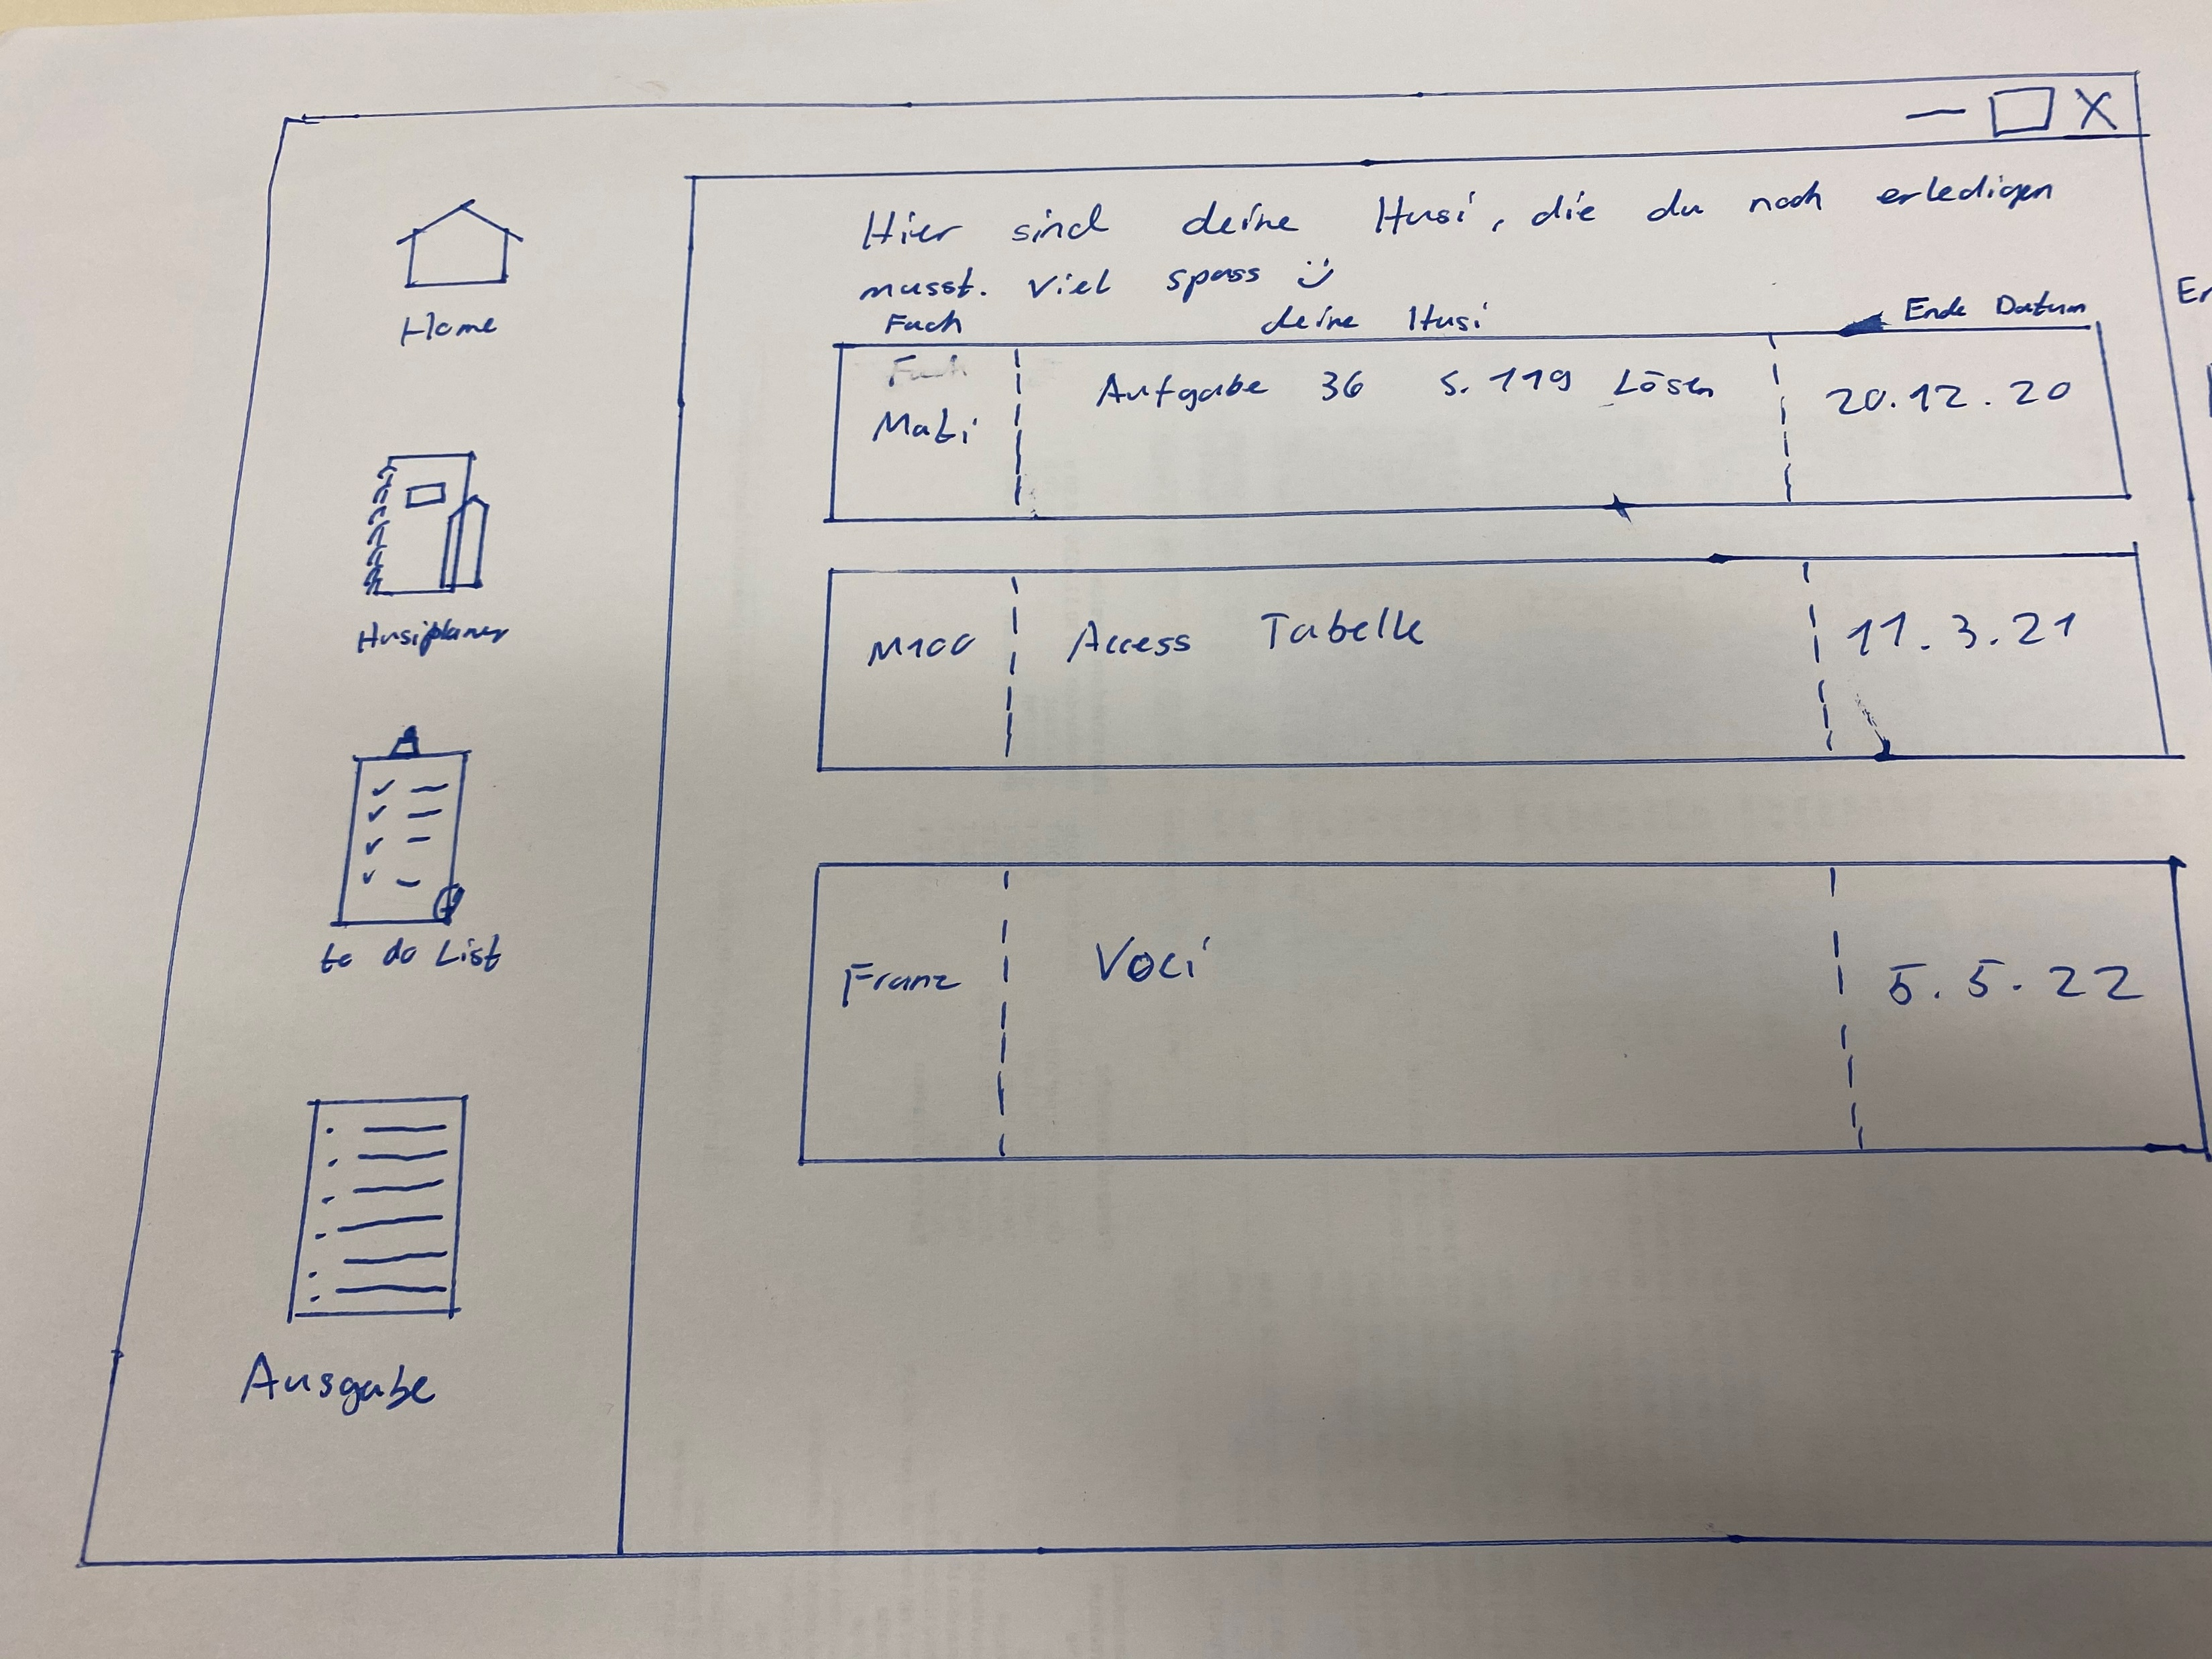 Home
Husiplaner
to do List
Ausgabe
Hier sind deine Husi, die du noch erledigen
musst. Viel spass
Fach deine Husi Ende Datum
Fach
Mati Aufgabe 36 S. 119 Lösen 20.12.20
M100 Access Tabelle 11.3.21
Franz Voci 5.5.22